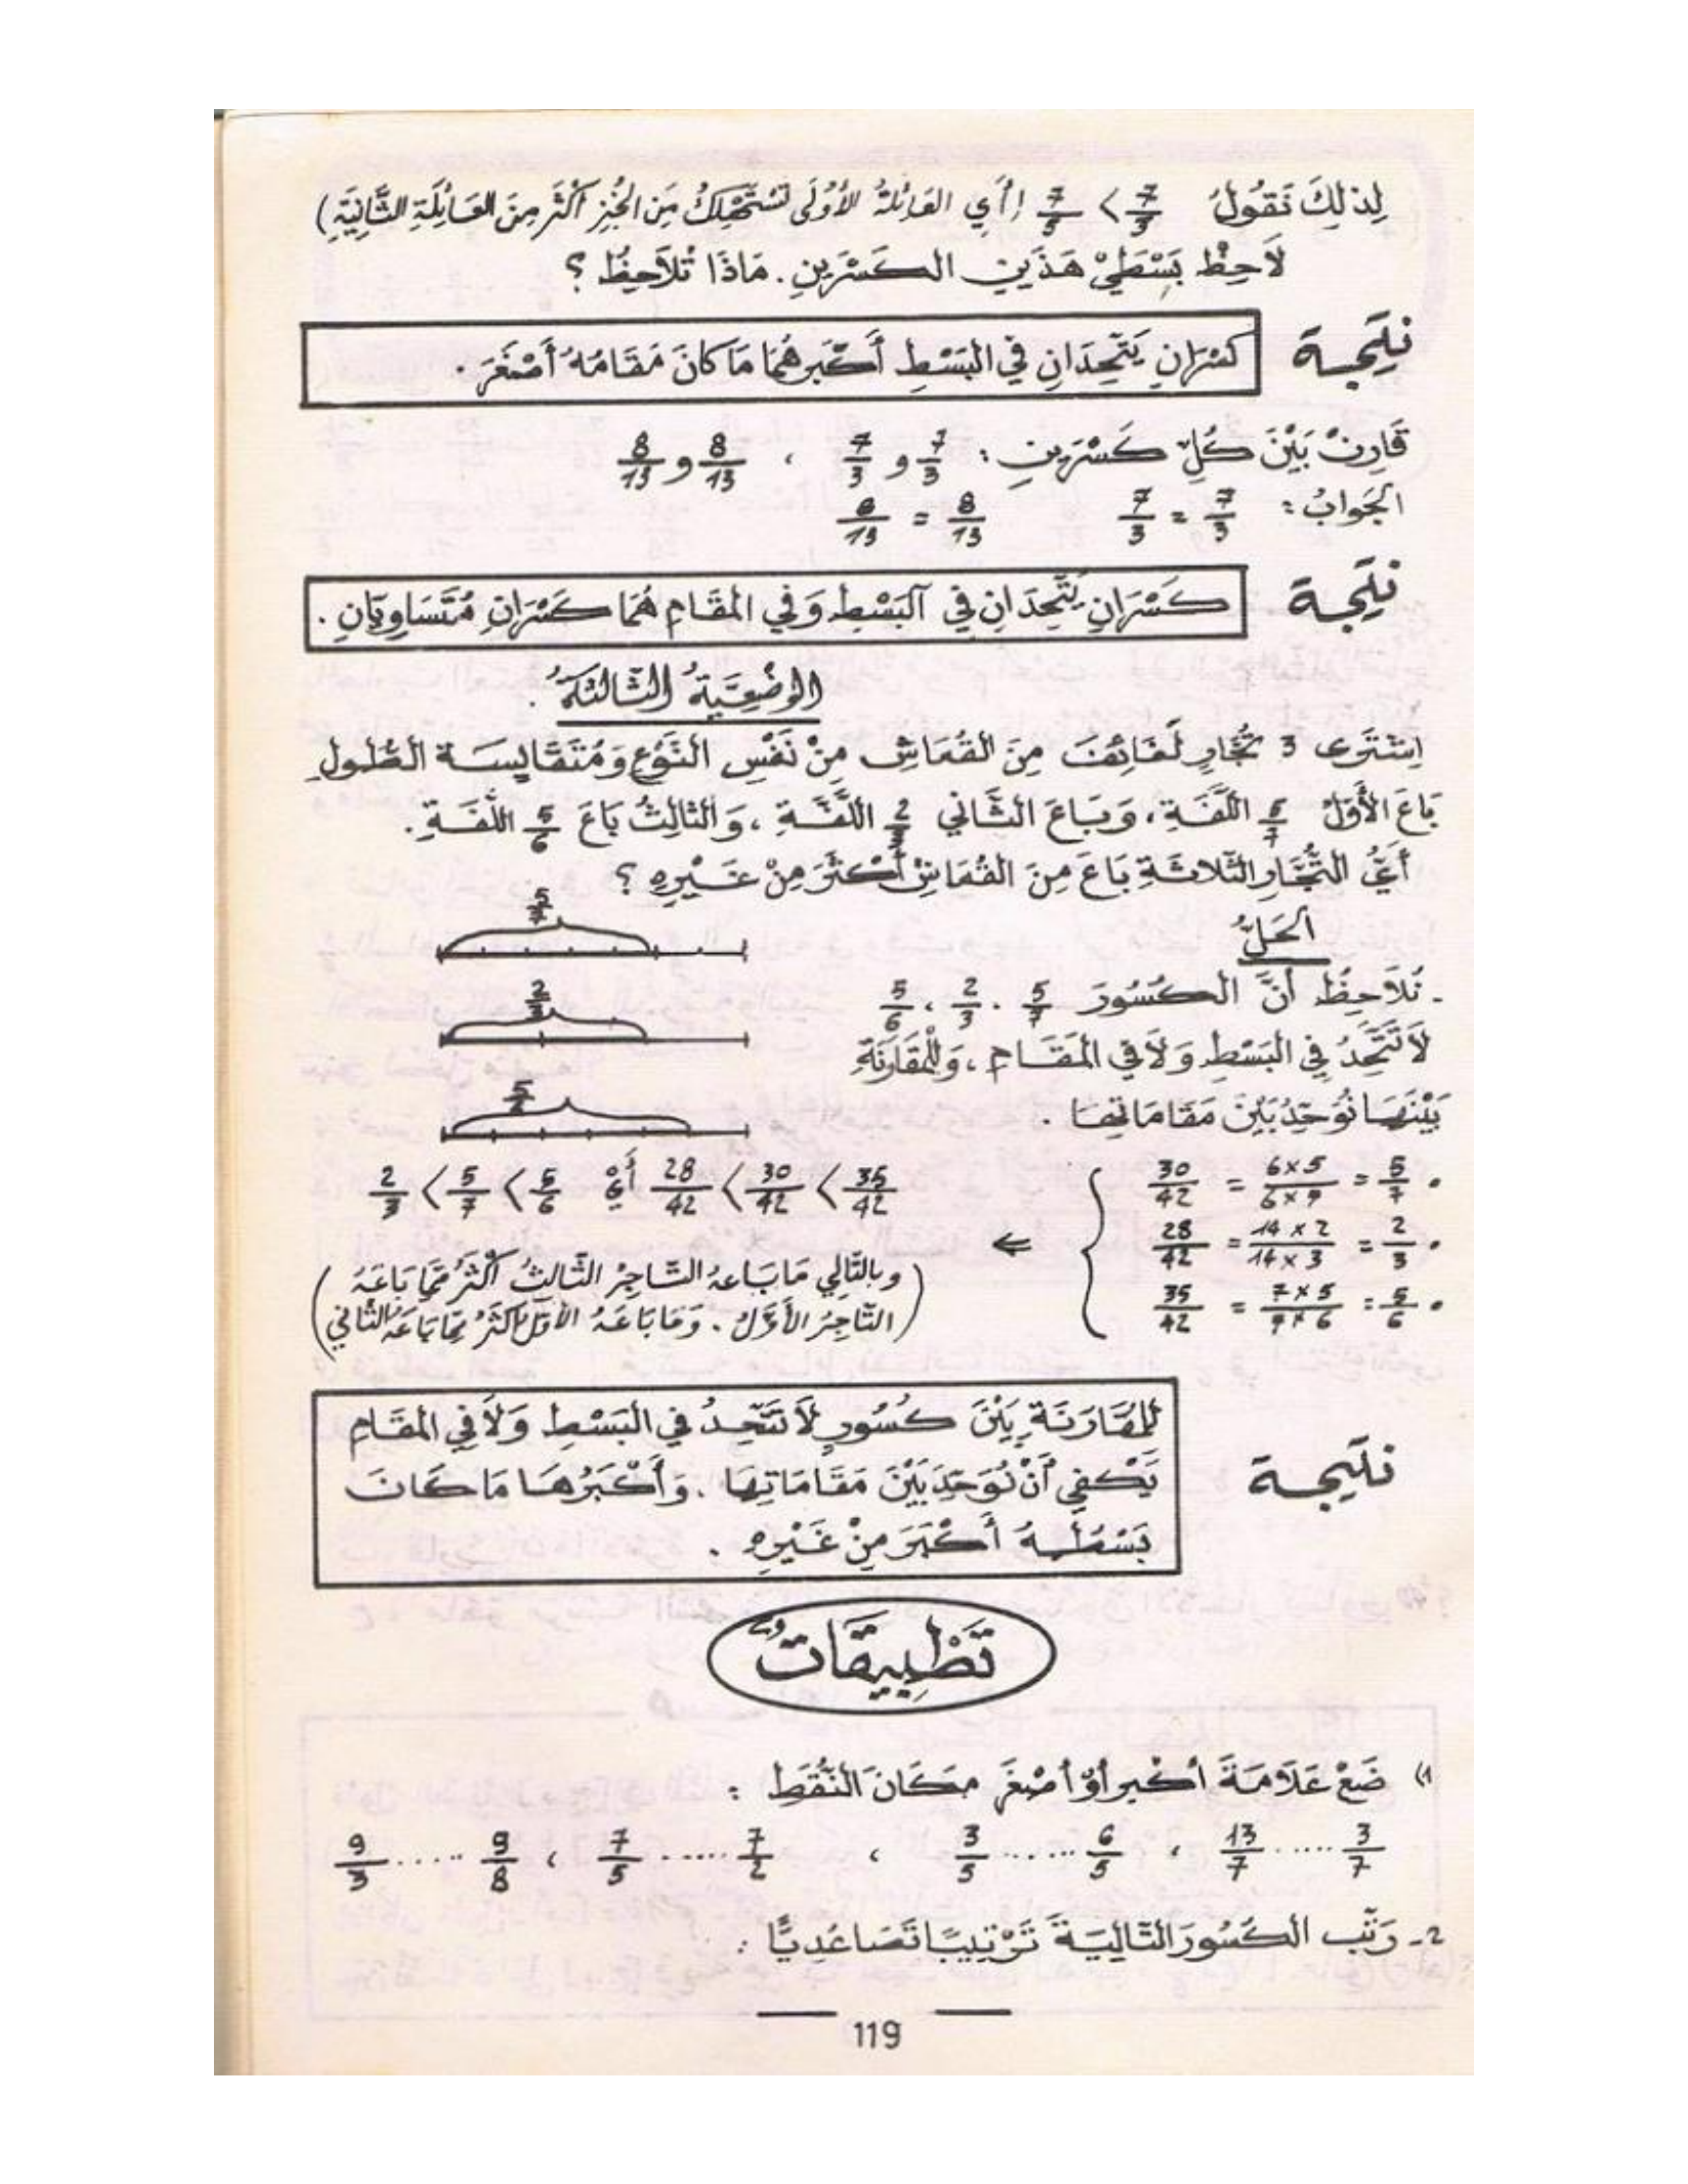 لِذلِكَ نَقُولُ 7/3 > 7/5 (أَي العَائِلَةُ الأُولَى تَسْتَهْلِكُ مِنَ الخُبْزِ أَكْثَرَ مِنَ العَائِلَةِ الثَّانِيَةِ)
لاَحِظْ بَسْطَيْ هَذَيْنِ الكَسْرَيْنِ . مَاذَا تُلاَحِظُ ؟
نتيجة
كَسْرَانِ يَتَّحِدَانِ فِي البَسْطِ أَكْبَرُهُمَا مَا كَانَ مَقَامُهُ أَصْغَرَ .
قَارِنْ بَيْنَ كُلِّ كَسْرَيْنِ : 7/3 و 7/3 ، 8/13 و 8/13
الجَوَابُ : 7/3 = 7/3 8/13 = 8/13
نتيجة
كَسْرَانِ يَتَّحِدَانِ فِي البَسْطِ وَفِي المَقَامِ هُمَا كَسْرَانِ مُتَسَاوِيَانِ .
الوَضْعِيَّةُ الثَّالِثَةُ .
اِشْتَرَى 3 تُجَّارٍ لَفَائِفَ مِنَ القُمَاشِ مِنْ نَفْسِ النَّوْعِ وَمُتَقَايِسَة الطُّولِ
بَاعَ الأَوَّلُ 5/7 اللَّفَّةِ ، وَبَاعَ الثَّانِي 2/3 اللَّفَّةِ ، وَالثَّالِثُ بَاعَ 5/6 اللَّفَّةِ .
أَيُّ التُّجَّارِ الثَّلاثَةِ بَاعَ مِنَ القُمَاشِ أَكْثَرَ مِنْ غَيْرِهِ ؟
الحَلُّ
5/7
- نُلاَحِظُ أَنَّ الكُسُورَ 5/7 . 2/3 ، 5/6
2/3
لاَ تَتَّحِدُ فِي البَسْطِ وَلاَ فِي المَقَامِ ، وَلِلْمُقَارَنَةِ
بَيْنَهَا نُوَحِّدُ بَيْنَ مَقَامَاتِهَا .
• 5/7 = 6×5/6×7 = 30/42
• 2/3 = 14×2/14×3 = 28/42
• 5/6 = 7×5/7×6 = 35/42
⇐ 35/42 > 30/42 > 28/42 أَيْ 5/6 > 5/7 > 2/3
(وبالتَّالِي مَا بَاعَهُ التَّاجِرُ الثَّالِثُ أَكْثَرُ مِمَّا بَاعَهُ
التَّاجِرُ الأَوَّلُ . وَمَا بَاعَهُ الأَوَّلُ أَكْثَرُ مِمَّا بَاعَهُ الثَّانِي)
نتيجة
لِلمُقَارَنَةِ بَيْنَ كُسُورٍ لاَ تَتَّحِدُ فِي البَسْطِ وَلاَ فِي المَقَامِ
يَكْفِي أَنْ نُوَحِّدَ بَيْنَ مَقَامَاتِهَا . وَأَكْبَرُهَا مَا كَانَ
بَسْطُهُ أَكْبَرَ مِنْ غَيْرِهِ .
تَطْبِيقَاتٌ
1) ضَعْ عَلاَمَةَ أكبر أَوْ أصْغَرَ مَكَانَ النُّقَطِ :
3/7 ..... 13/7 ، 6/5 ...... 3/5 ، 7/2 ...... 7/5 ، 9/8 ..... 9/3
2- رَتِّب الكُسُورَ التَّالِيَةَ تَرْتِيبًا تَصَاعُدِيًّا :
119